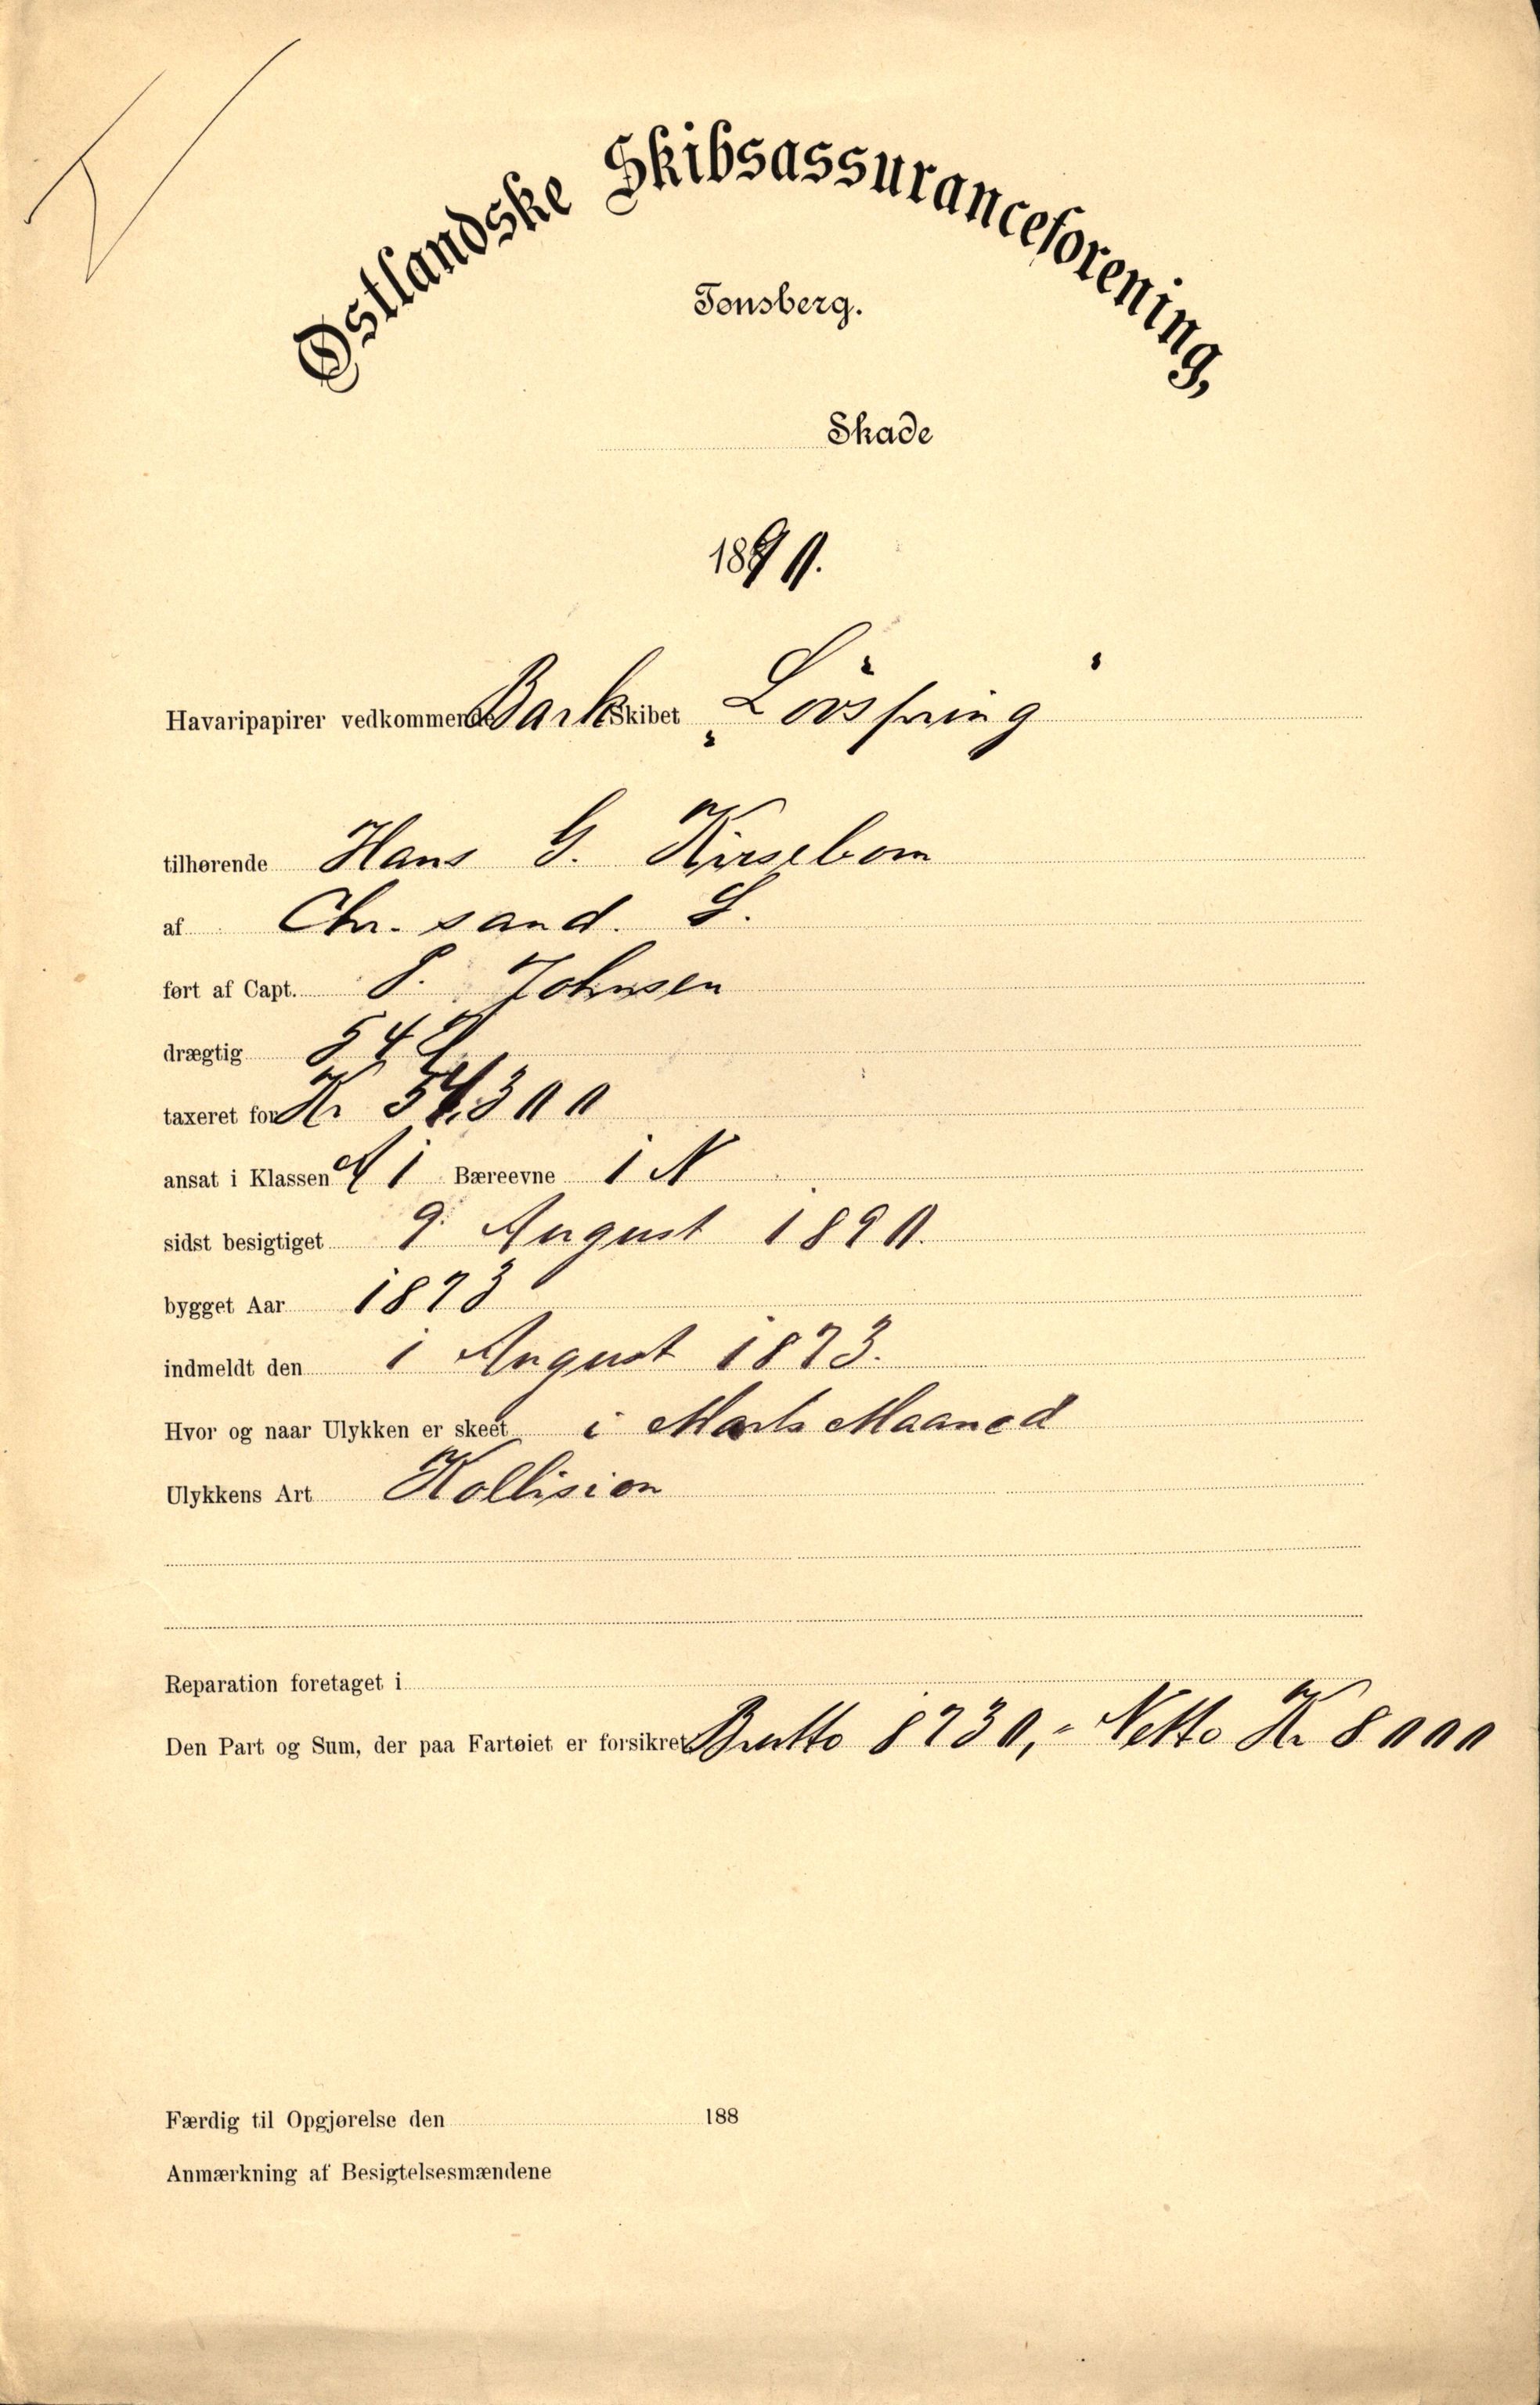 Østlandske Skibsassuranceforening,
Tonsberg.
Skade
1890.
Havaripapirer vedkommende Bark Skibet „Lövspring"
tilhørende Hans G. Kirsebom
af Chr. sand. S.
ført af Capt. P. Johnsen
drægtig 547
taxeret for Kr 54,300
ansat i Klassen A 1 Bæreevne 1 N
sidst besigtiget 9. August 1890.
bygget Aar 1873
indmeldt den 1 August 1873.
Hvor og naar Ulykken er skeet i Marts Maaned
Ulykkens Art Kollision
Reparation foretaget i
Den Part og Sum, der paa Fartøiet er forsikret Brutto 8730,- Netto Kr 8000
Færdig til Opgjørelse den 188
Anmærkning af Besigtelsesmændene